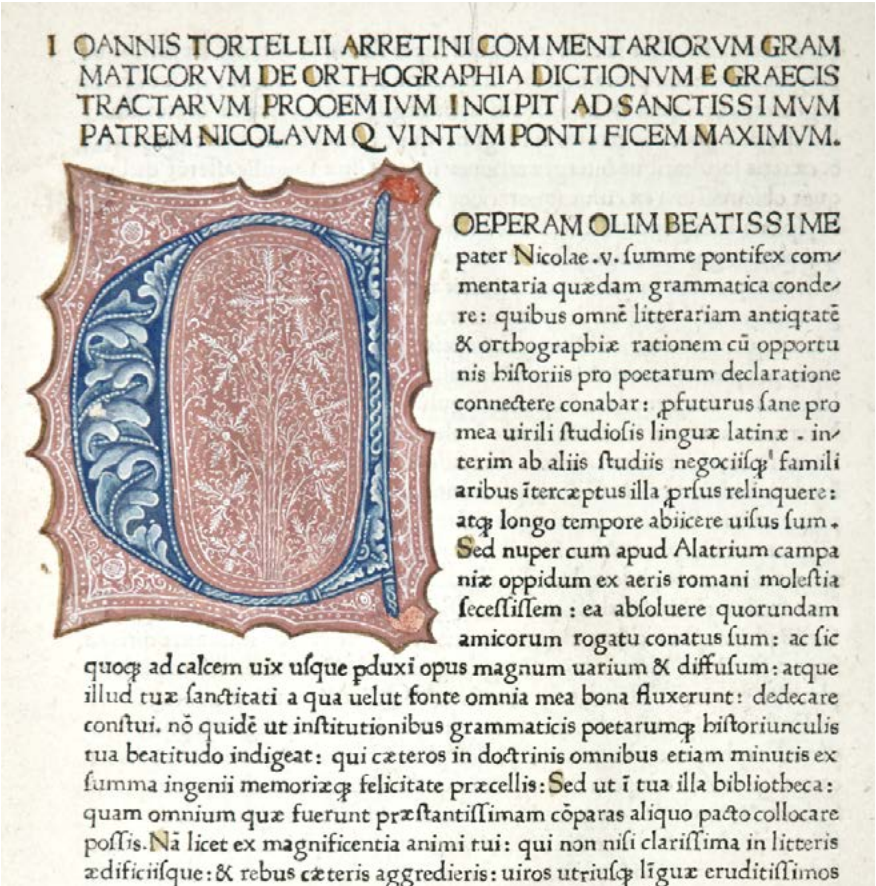 IOANNIS TORTELLII ARRETINI COMMENTARIORVM GRAM
MATICORVM DE ORTHOGRAPHIA DICTIONVM E GRAECIS
TRACTARVM PROOEMIVM INCIPIT AD SANCTISSIMVM
PATREM NICOLAVM QVINTVM PONTIFICEM MAXIMVM.
COEPERAM OLIM BEATISSIME
pater Nicolae .v. ſumme pontifex com-
mentaria quædam grammatica conde-
re: quibus omnē litterariam antiqtatē
& orthographiæ rationem cū opportu
nis hiſtoriis pro poetarum declaratione
connectere conabar: ꝓfuturus ſane pro
mea uirili ſtudioſis linguæ latinæ . in-
terim ab aliis ſtudiis negociiſqꝫ famili
aribus ītercæptus illa ꝓrſus relinquere:
atqꝫ longo tempore abiicere uiſus ſum.
Sed nuper cum apud Alatrium campa
niæ oppidum ex aeris romani moleſtia
ſeceſſiſſem : ea abſoluere quorundam
amicorum rogatu conatus ſum: ac ſic
quoqꝫ ad calcem uix uſque ꝑduxi opus magnum uarium & diffuſum: atque
illud tuæ ſanctitati a qua uelut fonte omnia mea bona fluxerunt: dedecare
conſtui. nō quidē ut inſtitutionibus grammaticis poetarumqꝫ hiſtoriunculis
tua beatitudo indigeat: qui cæteros in doctrinis omnibus etiam minutis ex
ſumma ingenii memoriæqꝫ felicitate præcellis: Sed ut ī tua illa bibliotheca:
quam omnium quæ fuerunt præſtantiſſimam cōparas aliquo pacto collocare
poſſis. Nā licet ex magnificentia animi tui: qui non niſi clariſſima in litteris
ædificiiſque: & rebus cæteris aggredieris: uiros utriuſqꝫ līguæ eruditiſſimos